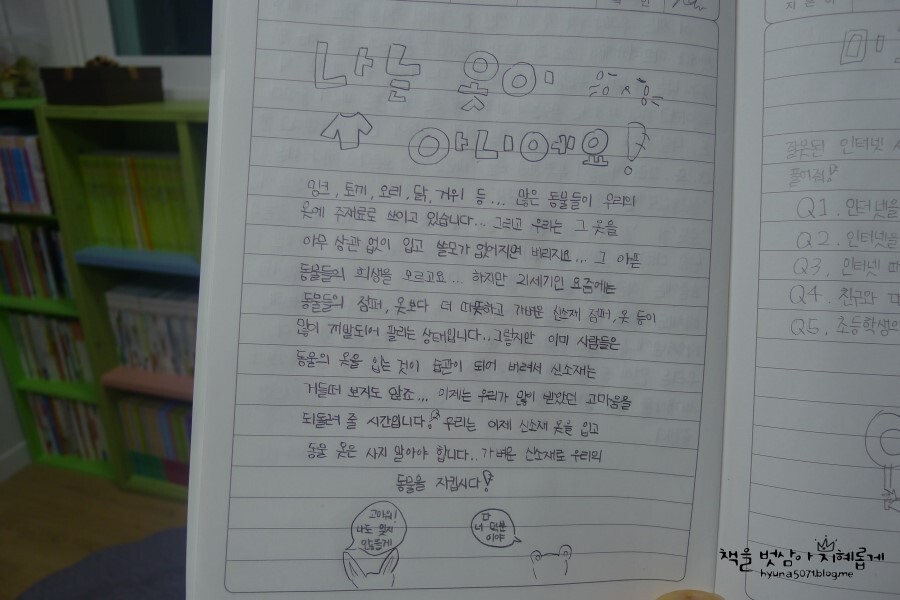 나는 옷이
아니에요!
밍크, 토끼, 오리, 닭, 거위 등... 많은 동물들이 우리의
옷에 주재료로 쓰이고 있습니다... 그리고 우리는 그 옷을
아무 상관 없이 입고 쓸모가 없어지면 버리지요... 그 아픈
동물들의 희생을 모르고요... 하지만 21세기인 요즘에는
동물들의 점퍼, 옷보다 더 따뜻하고 가벼운 신소재 점퍼, 옷 등이
많이 개발되어 팔리는 상태입니다.. 그렇지만 이미 사람들은
동물의 옷을 입는 것이 습관이 되어 버려서 신소재는
거들떠 보지도 않죠... 이제는 우리가 많이 받았던 고마움을
되돌려 줄 시간입니다! 우리는 이제 신소재 옷을 입고
동물 옷은 사지 말아야 합니다.. 가벼운 신소재로 우리의
동물을 지킵시다!
고마워!
나도 잊지
않을게!
다
너 덕분
이야
잘못된 인터넷
풀어봅!
Q1. 인터넷을
Q2. 인터넷을
Q3. 인터넷
Q4. 친구와
Q5. 초등학생이
책을 벗삼아 지혜롭게
hyuna5071.blog.me